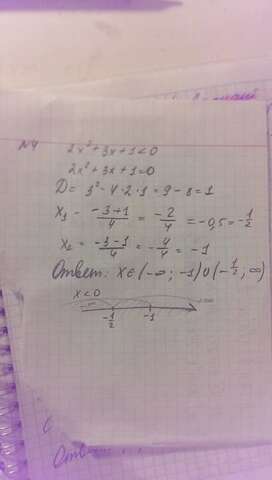 №4
2x² + 3x + 1 < 0
2x² + 3x + 1 = 0
D = 3² - 4 · 2 · 1 = 9 - 8 = 1
x₁ = (-3+1)/4 = -2/4 = -0,5 = -1/2
x₂ = (-3-1)/4 = -4/4 = -1
Ответ: x ∈ (-∞; -1) ∪ (-1/2; ∞)
x < 0
-1/2 -1